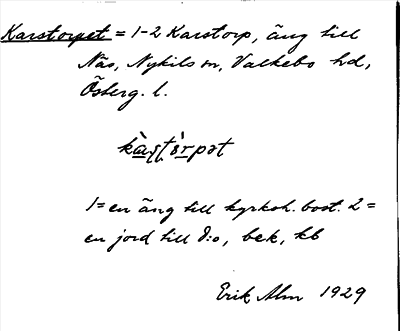 Karstorpet = 1-2 Karstorp, äng till
Näs, Nykils sn, Valkebo hd,
Österg. l.
1 = en äng till kyrkoh. bost. 2 =
en jord till d:o, bek, kb
Erik Alm 1929